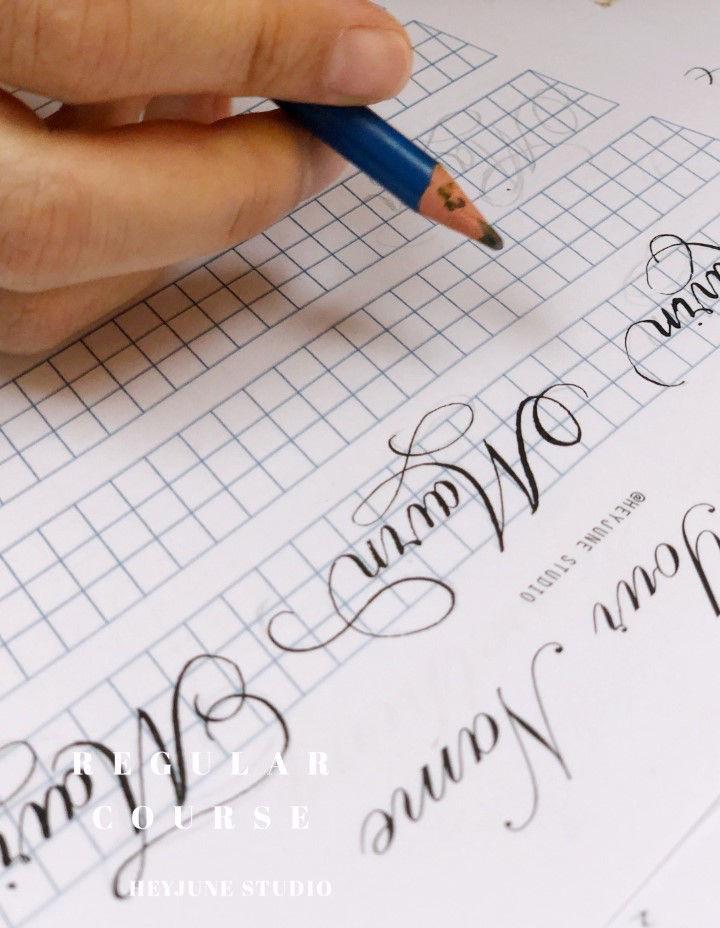 Your Name
@HEYJUNE STUDIO
Mavin
REGULAR
COURSE
HEYJUNE STUDIO